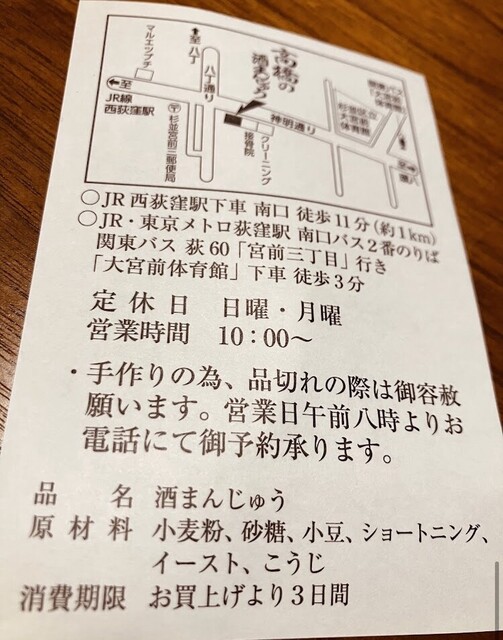 マルエツプチ
至八丁
八丁通り
高橋の
酒まんじゅう
杉並区立
大宮前
体育館
関東バス
大宮前
体育館
至
JR線
西荻窪駅
〒
杉並宮前三郵便局
接骨院
クリーニング
神明通り
○JR西荻窪駅下車 南口 徒歩11分(約1km)
○JR・東京メトロ荻窪駅 南口バス2番のりば
関東バス 荻60「宮前三丁目」行き
「大宮前体育館」下車 徒歩3分
定休日 日曜・月曜
営業時間 10:00〜
・手作りの為、品切れの際は御容赦
願います。営業日午前八時よりお
電話にて御予約承ります。
品名 酒まんじゅう
原材料 小麦粉、砂糖、小豆、ショートニング、
イースト、こうじ
消費期限 お買上げより3日間